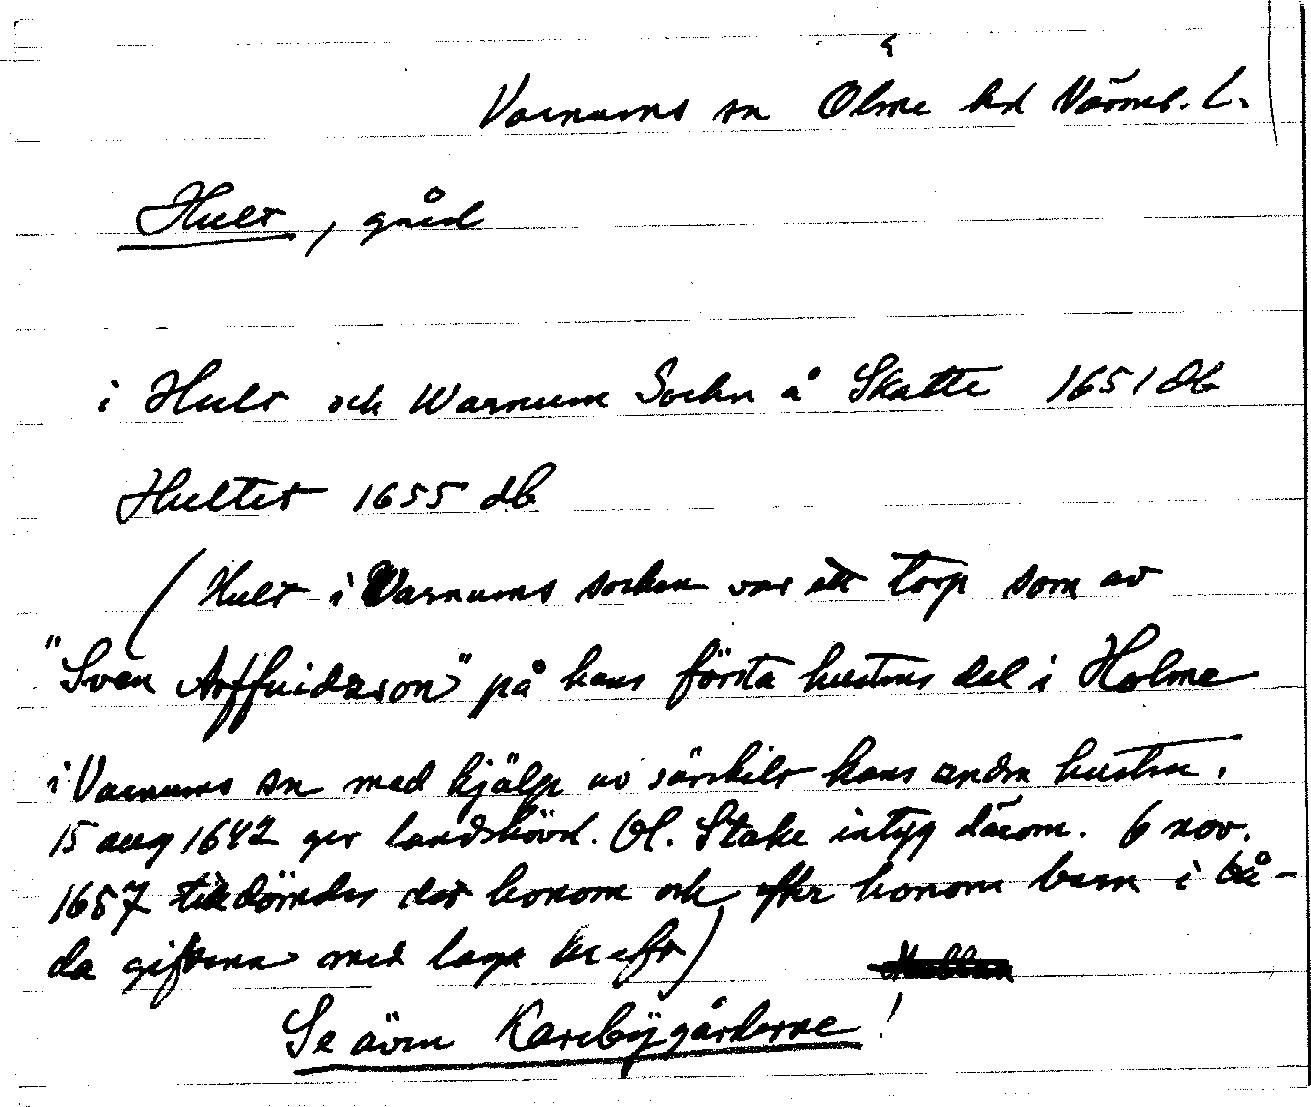 Varnums sn Ölme hd Värml. l.
Hult, gård
i Hult och Warnum Sockn å Skatte 1651 db
Hultet 1655 db
(Hult i Varnums socken var ett torp som av
"Sven Arffuidzson" på hans första hustrus del i Holme
i Varnums sn med hjälp av särskilt hans andra hustru.
15 aug 1642 ger landshövd. Ol. Stake intyg därom. 6 nov.
1657 tilldömdes det honom och efter honom barn i bå-
da giftena med laga kraft)
Se även Karebygårderne!